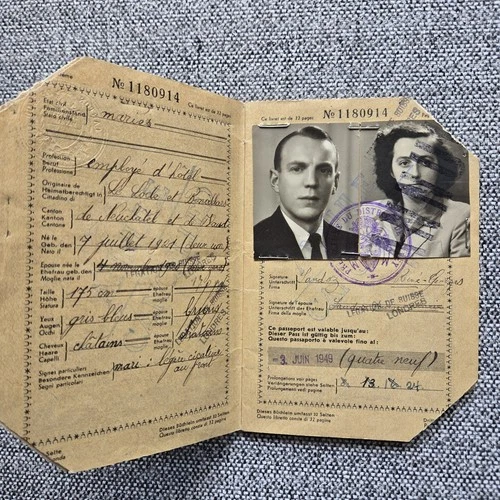 Nº 1180914
Ce livret est de 32 pages
Etat civil
Familienstand
Stato civile
mariés
Profession
Beruf
Professione
employé d'hôtel
Originaire de
Heimatberechtigt in
Cittadino di
Le Locle et
Canton
Kanton
Cantone
de Neuchâtel et de Vaud
Né le
Geb. den
Nato il
7 juillet 1921
Epouse née le
Ehefrau geb. den
Moglie nata il
Taille
Höhe
Statura
175 cm
épouse
Ehefrau
Moglie
Yeux
Augen
Occhi
gris bleus
épouse
Ehefrau
Moglie
bruns
Cheveux
Haare
Capelli
châtains
épouse
Ehefrau
Moglie
châtains
Signes particuliers
Besondere Kennzeichen
Segni particolari
mari: légère cicatrice
au front
Dieses Büchlein umfasst 32 Seiten
Questo libretto conta 32 pagine
Seite
Nº 1180914
Ce livret est de 32 pages
Signature
Unterschrift
Firma
Signature de l'épouse
Unterschrift der Ehefrau
Firma della moglie
LEGATION DE SUISSE
LONDRES
Ce passeport est valable jusqu'au:
Dieser Pass ist gültig bis zum:
Questo passaporto è valevole fino al:
-3. JUIN 1949 (quatre neuf)
Prolongations voir pages
Verlängerungen siehe Seiten
Prolungamenti vedi pag.
Dieses Büchlein umfasst 32 Seiten
Questo libretto conta 32 pagine